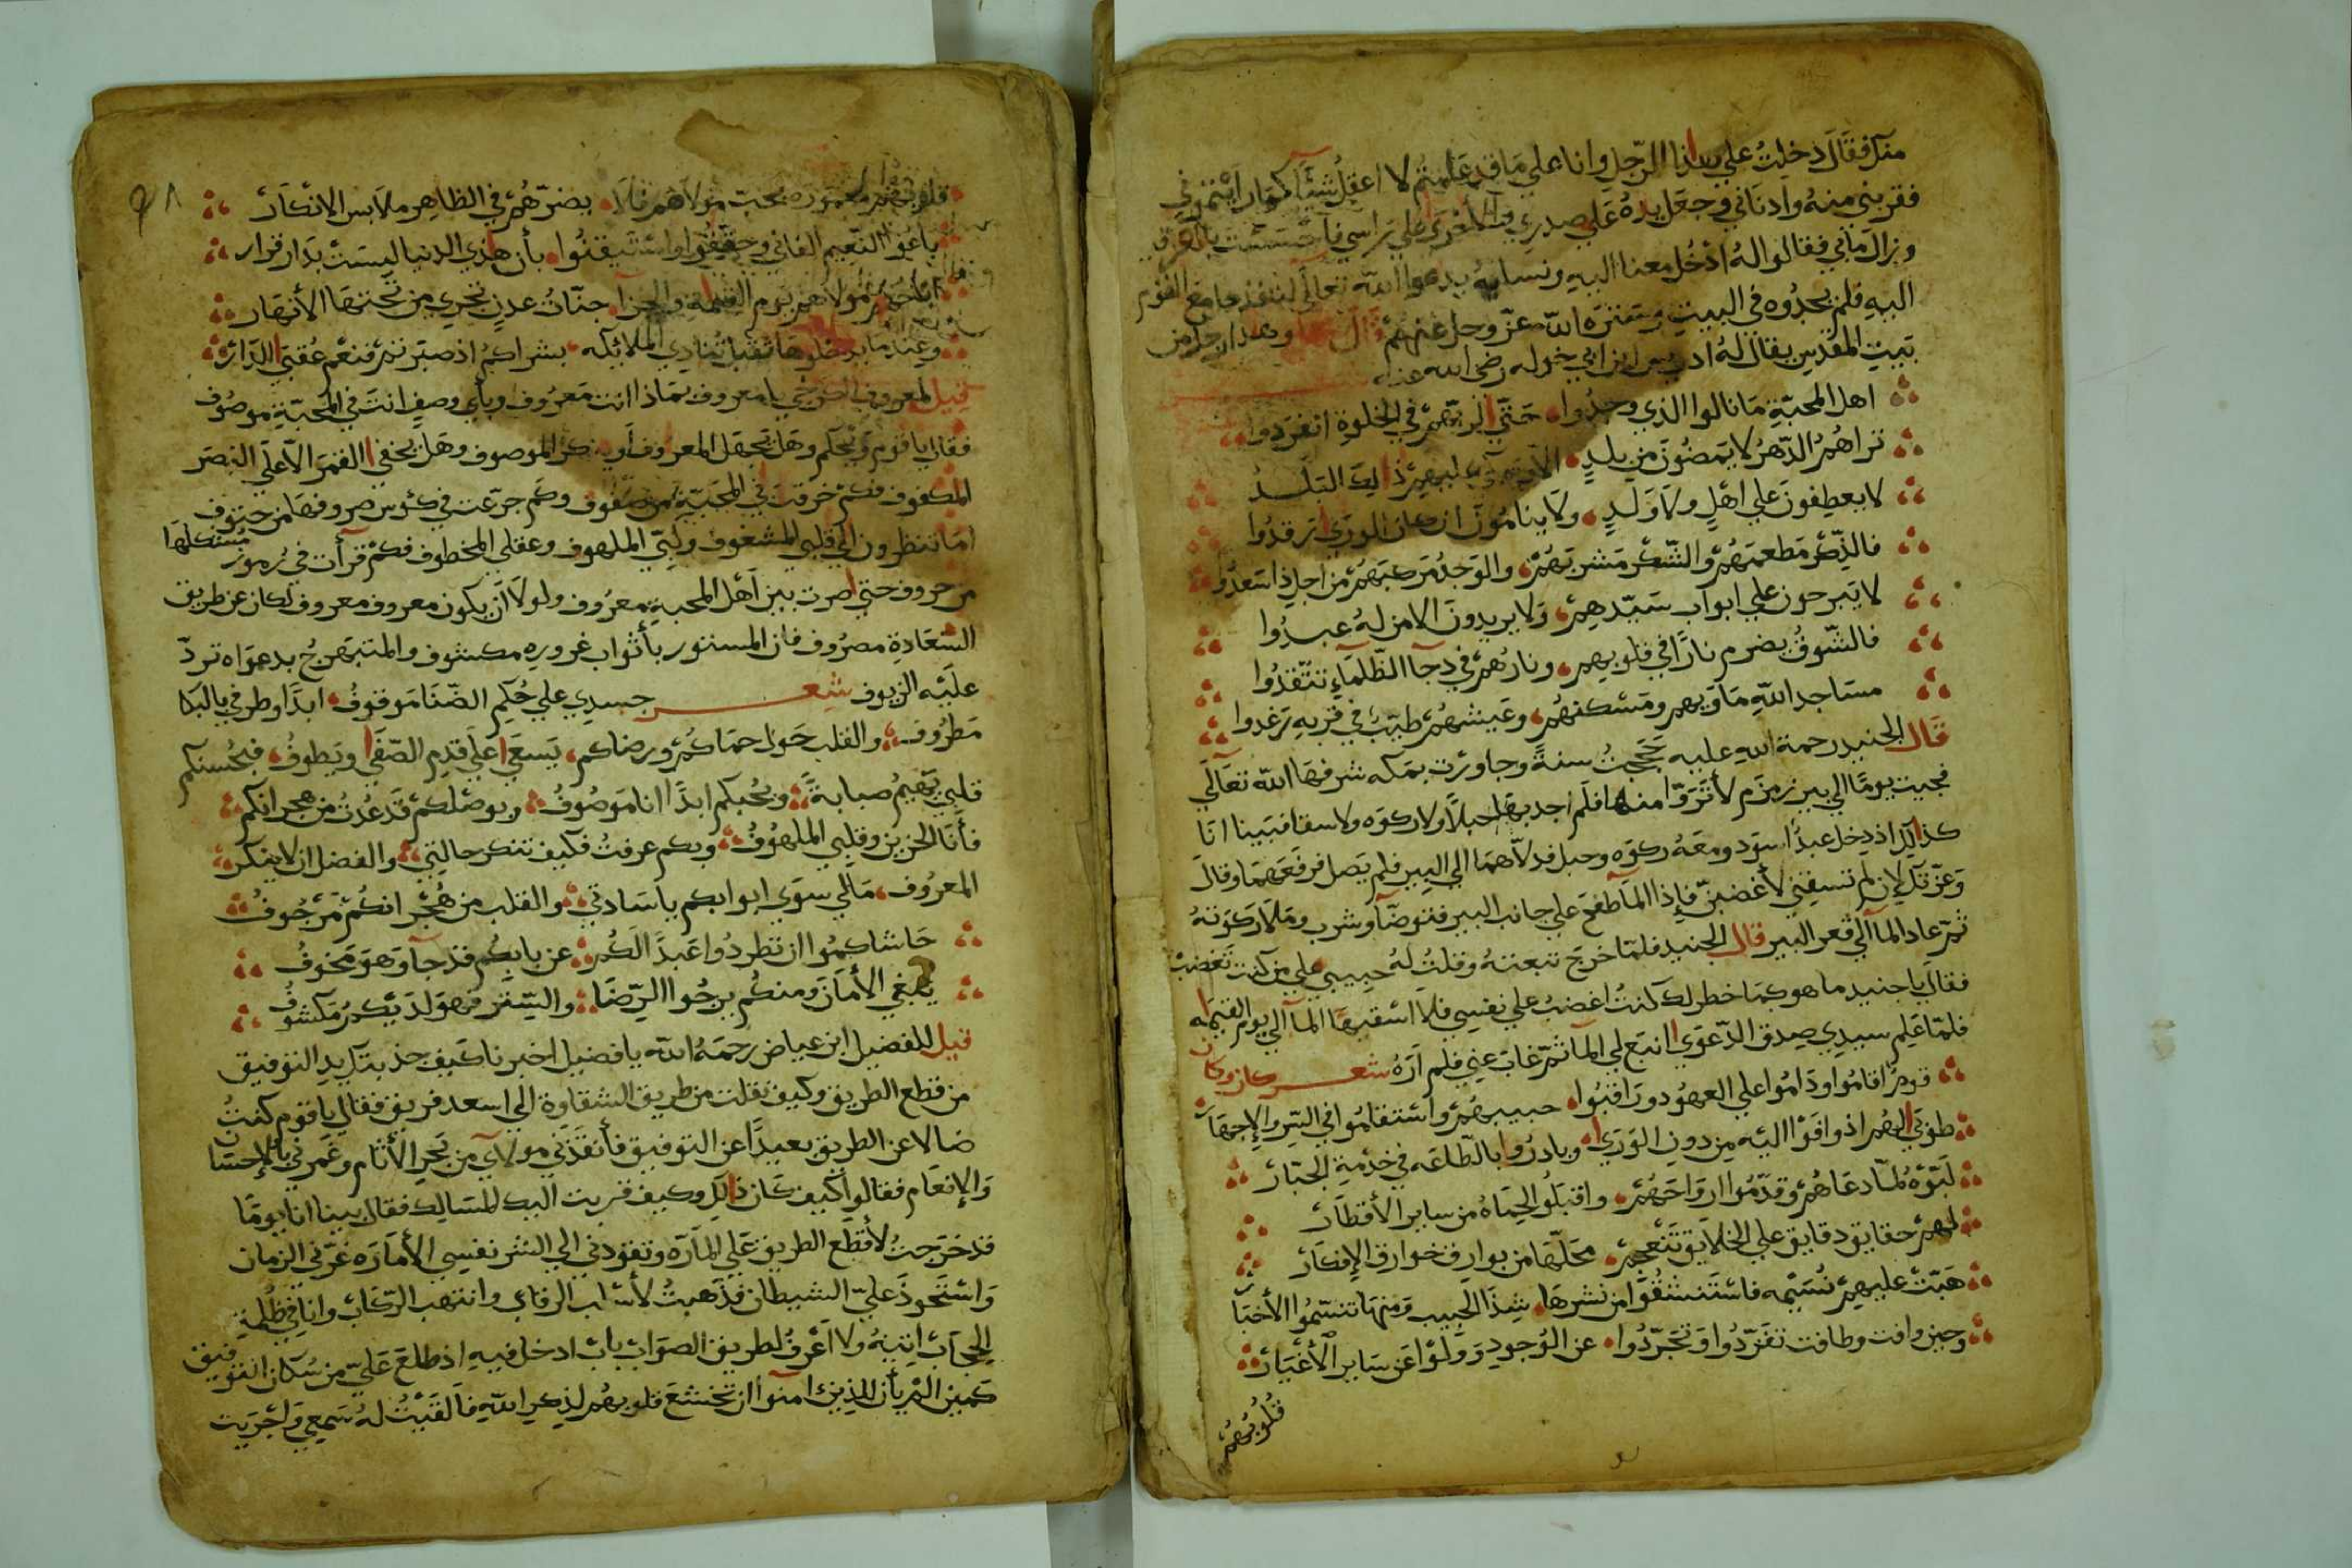 منك فقال دخلت علي هذا الرجل وانا علي ما قد علمتم لا اعقل شيئا كما رايتموني
فقربني منه وادناني وجعل يده علي صدري والاخري علي راسي فاحسست بالعرق
وزال مابي فقالوا له ادخل معنا اليه ونساله يدعوا الله تعالي لنا فدخل مع القوم
اليه فلم يجدوه في البيت وستره الله عز وجل عنهم قال وهذا رجل من
بيت المقدس يقال له ادريس ابن ابي خوله رضي الله عنه
اهل المحبة ما نالوا الذي وجدوا حتي لربهم في الخلوة انفردوا
تراهم الدهر لا يمضون من بلد الا ويبكي عليهم ذالك البلد
لا يعطفون علي اهل ولا ولد ولا ينامون ان كان الوري رقدوا
فالذكر مطعمهم والشكر مشربهم والوجد مركبهم من اجل ذا سعدوا
لا يبرحون علي ابواب سيدهم ولا يريدون الا من له عبدوا
فالشوق يضرم نارا في قلوبهم ونارهم في دجا الظلماء تتقدوا
مساجد الله ماويهم ومسكنهم وعيشهم طيب في قربه رغدوا
قال الجنيد رحمة الله عليه حججت سنة وجاورت بمكه شرفها الله تعالي
فجيت يوما الي بير زمزم لأتروا منها فلم اجد بها حبلا ولا ركوه ولا سقا فبينا انا
كذالك اذ دخل عبد اسود ومعه ركوه وحبل فدلاهما الي البير فلم يصل فرفعهما وقال
وعزتك لان لم تسقني لأغضبن فإذا الما طفح علي جانب البير فتوضا وشرب وملا ركوته
ثم عاد الما الي قعر البير قال الجنيد فلما خرج تبعته وقلت له حبيبي علي من كنت تغضب
فقال يا جنيد ما هو كما خطر لك كنت اغضب علي نفسي فلا اسقيها الما الي يوم القيمه
فلما علم سيدي صدق الدعوي انبع لي الما ثم غاب عني فلم اره شعر كان وكان
قوم اقاموا وداموا علي العهود وراقبوا حبيبهم واستقاموا في السر والإجهار
طوبي لهم اذ وافوا اليه من دون الوري وبادروا بالطاعه في خدمة الجبار
لبوه لما دعاهم وقدموا ارواحهم واقبلوا لحماه من ساير الأقطار
لهم حقايق دقايق علي الخلايق تنعجم محلها من بوارق خوارق الإفكار
هبت عليهم نسيمه فاستنشقوا من نشرها شذا الحبيب ومنها تنسموا الأخبار
وحين وافت وطافت تفردوا وتجردوا عن الوجود وولوا عن ساير الأغيار
قلوبهم
٩٨
قلوبهم معموره بحب مولاهم فلا يضرهم في الظاهر ملابس الانكار
باعوا النعيم الفاني وحققوا واستيقنوا بأن هذي الدنيا ليست بدار قرار
مولاهم يوم القيمة والجزا جنات عدن تجري من تحتها الأنهار
وعند ما يدخلوها تنادي الملائكه بشراكم اذ صبرتم فنعم عقبي الدار
قيل لمعروف الكرخي يا معروف بماذا انت معروف وبأي وصف انت في المحبة موصوف
فقال يا قوم ويحكم وهل يجهل المعروف أو ينكر الموصوف وهل يخفي القمر الا علي البصر
المكفوف فكم خرقت في المحبة من صفوف وكم جرعت في كئوس صروفها من حتوف
اما تنظرون الي قلبي المشغوف ولبي الملهوف وعقلي المخطوف فكم قرأت في رموز مشكلها
من حروف حتي صرت بين اهل المحبة معروف ولولا أن يكون معروف معروف لكان عن طريق
السعادة مصروف فان المستور بأثواب غروره مكشوف والمتبهرج بدعواه ترد
عليه الزيوف شعر جسدي علي حكم الضنا موقوف ابدا وطرفي بالبكا
مطروف والقلب حول حماكم ورضاكم يسعي علي قدم الصفا ويطوف فبحسنكم
قلبي يهيم صبابة وبحبكم ابدا انا موصوف وبوصلكم قد عدت من هجرانكم
فأنا الحزين وقلبي الملهوف وبكم عرفت فكيف تنكر حالتي والفضل ان لا ينكر
المعروف مالي سوي ابوابكم يا سادتي والقلب من هجرانكم مرجوف
حاشاكموا ان تطردوا عبدا لكم عن بابكم قد جا وهو مخوف
يبغي الأمان ومنكم يرجوا الرضا والستر فهو لديكم مكشوف
قيل للفضيل ابن عياض رحمه الله يا فضيل اخبرنا كيف جذبتك يد التوفيق
من قطع الطريق وكيف نقلت من طريق الشقاوة الي اسعد فريق فقال يا قوم كنت
ضالا عن الطريق بعيدا عن التوفيق فأنقذني مولاي من بحر الأثام وغمرني بالإحسان
والإنعام فقالوا كيف كان ذالك وكيف قربت اليك المسالك فقال بينا انا يوما
قد خرجت لأقطع الطريق علي الماره وتقودني الي الشر نفسي الأماره غرني الزمان
واستحوذ علي الشيطان فذهبت لأسلب الرقاب وانتهب الركاب وانا في ظلمة
الحجاب اتيه ولا اعرف لطريق الصواب باب ادخل فيه اذ طلع علي من سكان التوفيق
كمين الم يأن للذين امنوا ان تخشع قلوبهم لذكر الله فالقيت له سمعي واجريت